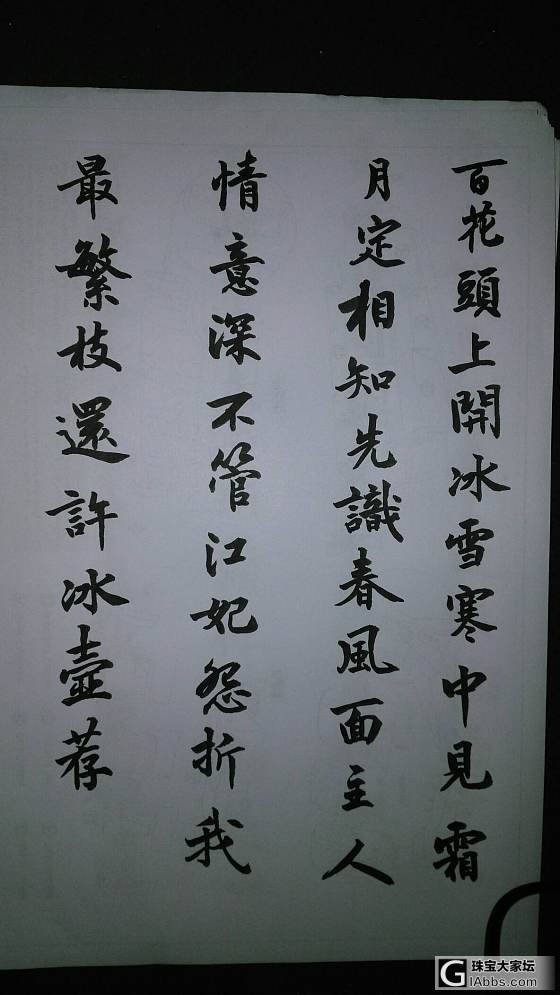 百花頭上開冰雪寒中見霜
月定相知先識春風面主人
情意深不管江妃怨折我
最繁枝還許冰壺荐
珠宝大家坛
GIAbbs.com